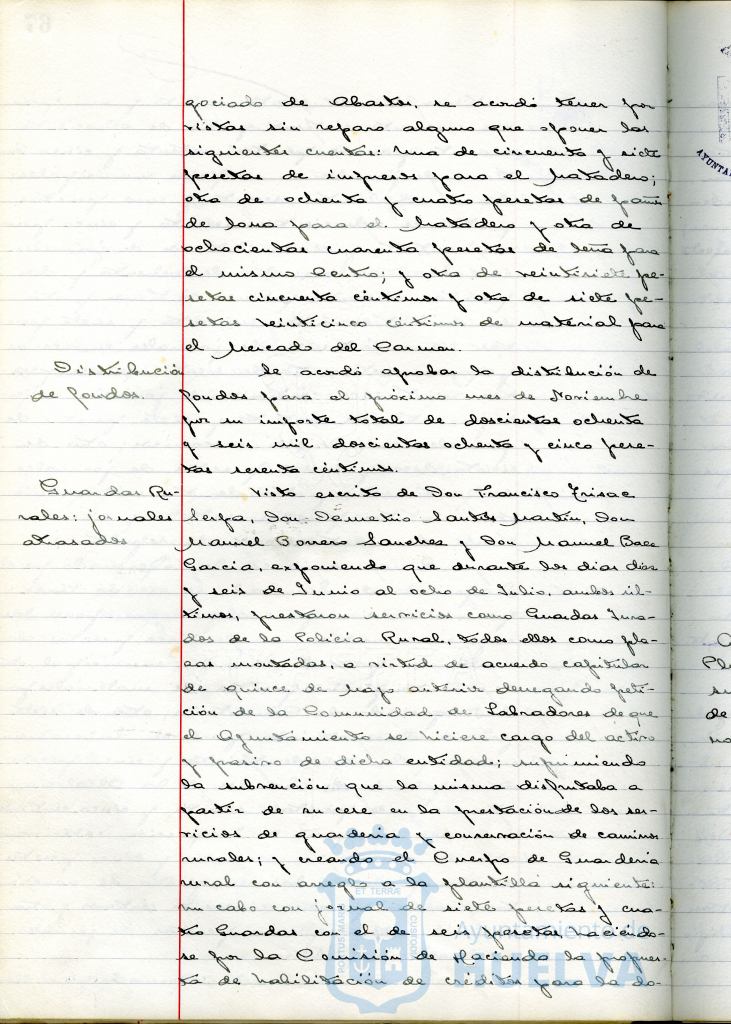 gociado de Abastos, se acordó tener por
vistas sin reparo alguno que oponer las
siguientes cuentas: una de cincuenta y siete
pesetas de impresos para el Matadero;
otra de ochenta y cuatro pesetas de paños
de lona para el Matadero y otra de
ochocientas cuarenta pesetas de leña para
el mismo Centro; y otra de veintisiete pe-
setas cincuenta céntimos y otra de siete pe-
setas veinticinco céntimos de material para
el Mercado del Carmen.
Distribución
de fondos.
Se acordó aprobar la distribución de
fondos para el próximo mes de Noviembre
por su importe total de doscientas ochenta
y seis mil doscientas ochenta y cinco pese-
tas sesenta céntimos.
Guardas Ru-
rales: jornales
atrasados
Visto escrito de Don Francisco
Serpa, Don Demetrio Santos Martín, Don
Manuel Borrero Sanchez y Don Manuel Baez
Garcia, exponiendo que durante los dias diez
y seis de Junio al ocho de Julio, ambos úl-
timos, prestaron servicios como Guardas Jura-
dos de la Policía Rural, todos ellos como pla-
zas montadas, a virtud de acuerdo capitular
de quince de Mayo anterior denegando peti-
ción de la Comunidad de Labradores de que
el Ayuntamiento se hiciese cargo del activo
y pasivo de dicha entidad; suprimiendo
la subvención que la misma disfrutaba a
partir de su cese en la prestación de los ser-
vicios de guardería y conservación de caminos
rurales; y creando el Cuerpo de Guardería
rural con arreglo a la plantilla siguiente:
un cabo con jornal de siete pesetas y cua-
tro Guardas con el de seis pesetas haciendo-
se por la Comisión de Hacienda la propues-
ta de habilitación de créditos para la do-
Ayuntamiento de
HUELVA